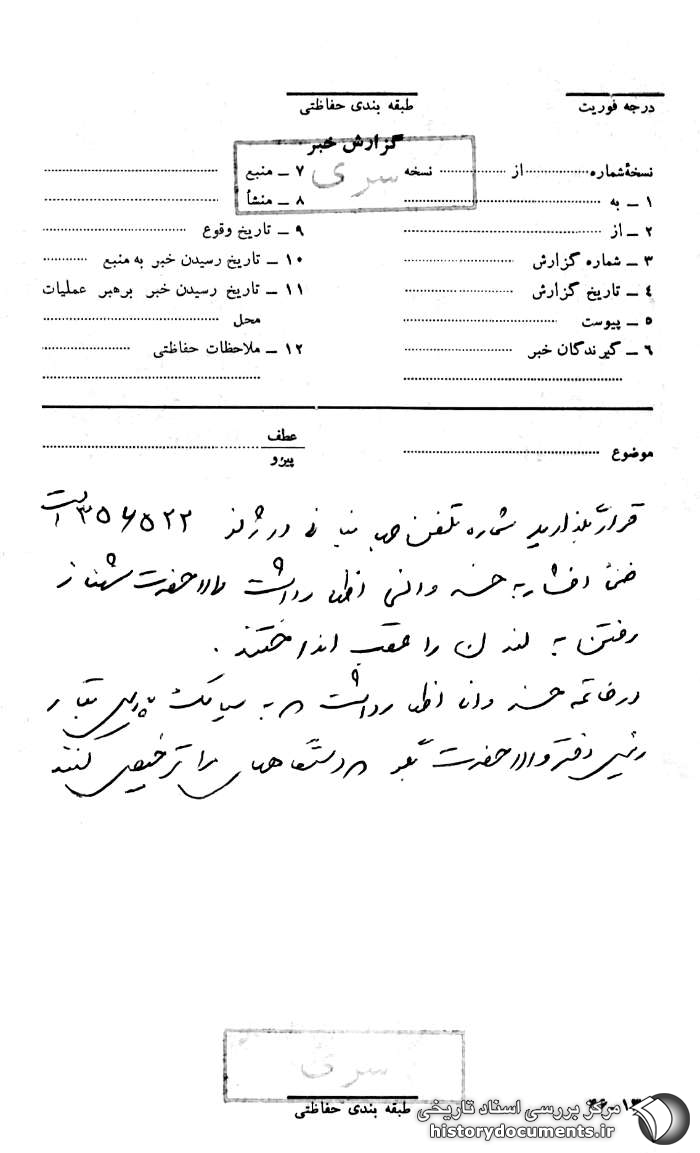 درجه فوریت
طبقه بندی حفاظتی
گزارش خبر
سری
نسخهٔ شماره .......... از .......... نسخه
۱ ـ به
۲ ـ از
۳ ـ شماره گزارش
۴ ـ تاریخ گزارش
۵ ـ پیوست
۶ ـ گیرندگان خبر
۷ ـ منبع
۸ ـ منشأ
۹ ـ تاریخ وقوع
۱۰ ـ تاریخ رسیدن خبر به منبع
۱۱ ـ تاریخ رسیدن خبر برهبر عملیات
محل
۱۲ ـ ملاحظات حفاظتی
موضوع
عطف
پیرو
قرار بگذارید شماره تلفن در ژنو ۳۵۶۵۲۲ است
ضمناً افشار به اظهار داشت والاحضرت شهناز
رفتن به لندن را عقب انداختند .
در خاتمه اظهار داشت به سیامک
رئیس دفتر والاحضرت بگو دستگاههای مرا ترخیص کنند
سری
طبقه بندی حفاظتی
مرکز بررسی اسناد تاریخی
historydocuments.ir